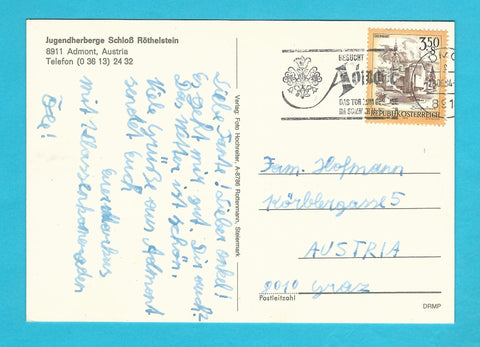 Jugendherberge Schloß Röthelstein
8911 Admont, Austria
Telefon (0 36 13) 24 32
Liebe Tante! Lieber Onkel!
Es geht mir gut. Dir auch?
Das Wetter ist schön.
Viele Grüße aus Admont
sendet Euch
Euer Markus
mit Klassenkameraden
Verlag: Foto Hochreiter, A-8786 Rottenmann, Steiermark
BESUCHT
Admont
DAS TOR ZUM
REPUBLIK ÖSTERREICH
3.50
Fam. Hofmann
Körblergasse 5
AUSTRIA
8010 Graz
Postleitzahl
DRMP